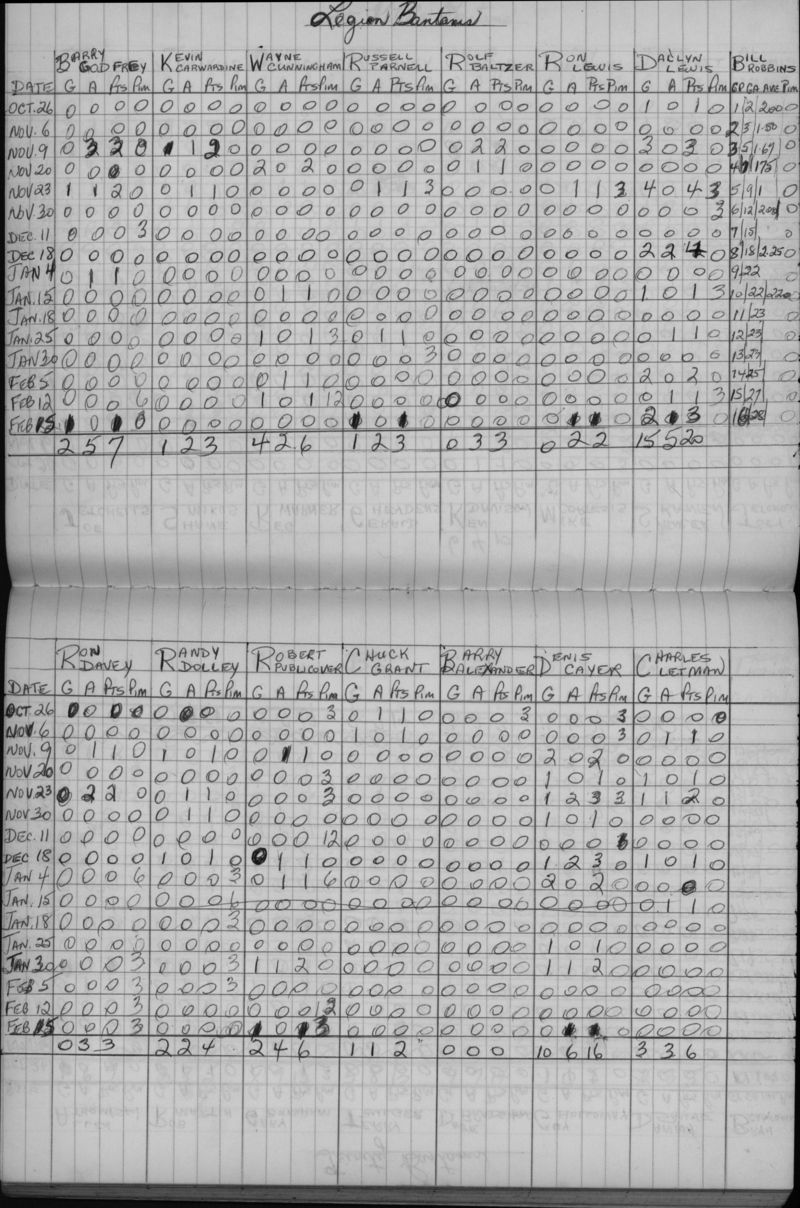 Legion Bantams
BARRY KEVIN WAYNE RUSSELL ROLF RON DARLYN BILL
GODFREY CARWARDINE CUNNINGHAM PARNELL BALTZER LEWIS LEWIS ROBBINS
DATE G A Pts Pim G A Pts Pim G A Pts Pim G A Pts Pim G A Pts Pim G A Pts Pim G A Pts Pim GP GA AVE Pim
OCT.26 0 0 0 0 0 0 0 0 0 0 0 0 0 0 0 0 0 0 0 0 0 0 0 1 0 1 0 1 2 200 0
NOV. 6 0 0 0 0 0 0 0 0 0 0 0 0 0 0 0 0 0 0 0 0 0 0 0 0 0 0 0 0 2 3 1.50 0
NOV. 9 0 2 2 0 1 2 0 0 0 0 0 0 0 0 0 0 2 2 0 0 0 0 0 3 0 3 0 3 5 1.67 0
NOV 20 0 0 0 0 0 0 0 0 2 0 2 0 0 0 0 0 0 1 1 0 0 0 0 0 0 0 0 0 4 175 0
NOV 23 1 1 2 0 0 1 1 0 0 0 0 0 0 1 1 3 0 0 0 0 0 1 1 3 4 0 4 3 5 9 1 0
NOV. 30 0 0 0 0 0 0 0 0 0 0 0 0 0 0 0 0 0 0 0 0 0 0 0 0 0 0 0 3 6 12 0
DEC. 11 0 0 0 3 0 0 0 0 0 0 0 0 0 0 0 0 0 0 0 0 0 0 0 0 0 0 0 0 7 15 0
DEC 18 0 0 0 0 0 0 0 0 0 0 0 0 0 0 0 0 0 0 0 0 0 0 0 0 2 2 4 0 8 18 2.25 0
JAN 4 0 1 1 0 0 0 0 0 0 0 0 0 0 0 0 0 0 0 0 0 0 0 0 0 0 0 0 0 9 22 0
JAN. 15 0 0 0 0 0 0 0 0 0 1 1 0 0 0 0 0 0 0 0 0 0 0 0 0 1 0 1 3 10 22 220 0
JAN. 18 0 0 0 0 0 0 0 0 0 0 0 0 0 0 0 0 0 0 0 0 0 0 0 0 0 0 0 0 11 23 0
JAN. 25 0 0 0 0 0 0 0 0 1 0 1 3 0 1 1 0 0 0 0 0 0 0 0 0 0 1 1 0 12 23 0
JAN 30 0 0 0 0 0 0 0 0 0 0 0 0 0 0 0 3 0 0 0 0 0 0 0 0 0 0 0 0 13 23 0
FEB 5 0 0 0 0 0 0 0 0 0 1 1 0 0 0 0 0 0 0 0 0 0 0 0 0 2 0 2 0 14 25 0
FEB 12 0 0 0 6 0 0 0 0 1 0 1 12 0 0 0 0 0 0 0 0 0 0 0 0 0 1 1 3 15 27 0
FEB 15 1 0 1 0 0 0 0 0 0 0 0 0 1 0 1 0 0 0 0 0 0 1 1 0 2 1 3 0 16 28 0
2 5 7 1 2 3 4 2 6 1 2 3 0 3 3 0 2 2 15 5 20
RON RANDY ROBERT CHUCK BARRY DENIS CHARLES
DAVEY DOLLEY PUBLICOVER GRANT ALEXANDER CAYER LETMAN
DATE G A Pts Pim G A Pts Pim G A Pts Pim G A Pts Pim G A Pts Pim G A Pts Pim G A Pts Pim
OCT 26 0 0 0 0 0 0 0 0 0 0 0 3 0 1 1 0 0 0 0 3 0 0 0 3 0 0 0 0
NOV. 6 0 0 0 0 0 0 0 0 0 0 0 0 1 0 1 0 0 0 0 0 0 0 0 3 0 1 1 0
NOV. 9 0 1 1 0 1 0 1 0 0 1 1 0 0 0 0 0 0 0 0 0 2 0 2 0 0 0 0 0
NOV 20 0 0 0 0 0 0 0 0 0 0 0 3 0 0 0 0 0 0 0 0 1 0 1 0 1 0 1 0
NOV 23 0 2 2 0 0 1 1 0 0 0 0 3 0 0 0 0 0 0 0 0 1 2 3 3 1 1 2 0
NOV 30 0 0 0 0 0 1 1 0 0 0 0 0 0 0 0 0 0 0 0 0 1 0 1 0 0 0 0 0
DEC. 11 0 0 0 0 0 0 0 0 0 0 0 12 0 0 0 0 0 0 0 0 0 0 0 0 0 0 0
DEC 18 0 0 0 0 1 0 1 0 0 1 1 0 0 0 0 0 0 0 0 0 1 2 3 0 1 0 1 0
JAN 4 0 0 0 6 0 0 0 3 0 1 1 6 0 0 0 0 0 0 0 0 2 0 2 0 0 0 0 0
JAN. 15 0 0 0 0 0 0 0 6 0 0 0 0 0 0 0 0 0 0 0 0 0 0 0 0 0 1 1 0
JAN. 18 0 0 0 0 0 0 0 3 0 0 0 0 0 0 0 0 0 0 0 0 0 0 0 0 0 0 0 0
JAN. 25 0 0 0 0 0 0 0 0 0 0 0 0 0 0 0 0 0 0 0 0 1 0 1 0 0 0 0 0
JAN 30 0 0 0 3 0 0 0 3 1 1 2 0 0 0 0 0 0 0 0 0 1 1 2 0 0 0 0 0
FEB 5 0 0 0 3 0 0 0 3 0 0 0 0 0 0 0 0 0 0 0 0 0 0 0 0 0 0 0 0
FEB 12 0 0 0 3 0 0 0 0 0 0 0 12 0 0 0 0 0 0 0 0 0 0 0 0 0 0 0 0
FEB 15 0 0 0 3 0 0 0 0 1 0 1 3 0 0 0 0 0 0 0 0 0 1 1 0 0 0 0 0
0 3 3 2 2 4 2 4 6 1 1 2 0 0 0 10 6 16 3 3 6